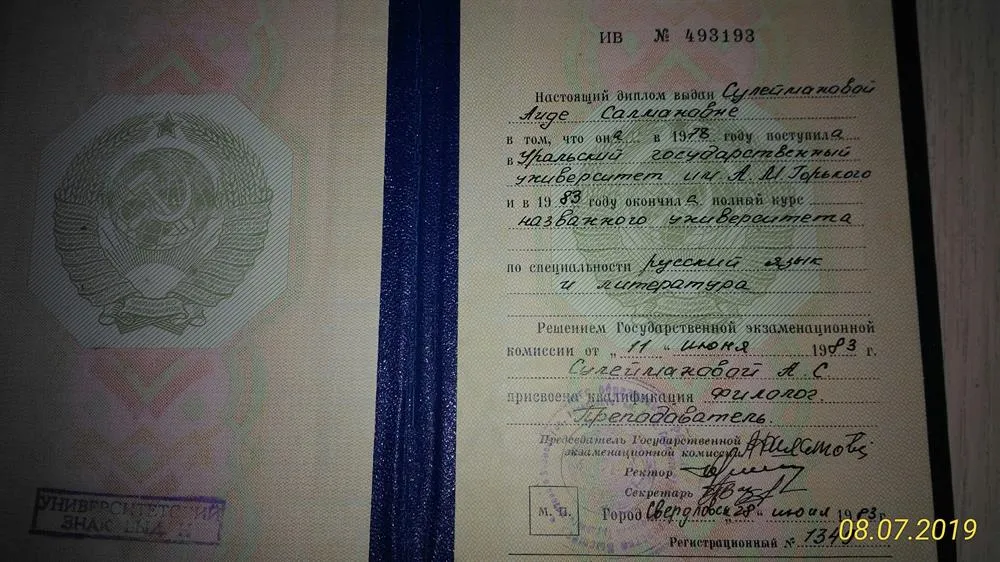 УНИВЕРСИТЕТСКИЙ
ЗНАК ВЫДАН
ИВ № 493193
Настоящий диплом выдан Сулеймановой
Аиде Салмановне
в том, что она в 1978 году поступила
в Уральский государственный
университет им А. М. Горького
и в 1983 году окончила полный курс
названного университета
по специальности русский язык
и литература
Решением Государственной экзаменационной
комиссии от „11" июня 1983 г.
Сулеймановой А. С.
присвоена квалификация Филолог.
Преподаватель.
Председатель Государственной
экзаменационной комиссии
Ректор
Секретарь
М. П.
Город Свердловск „28" июня 1983 г.
Регистрационный №
08.07.2019